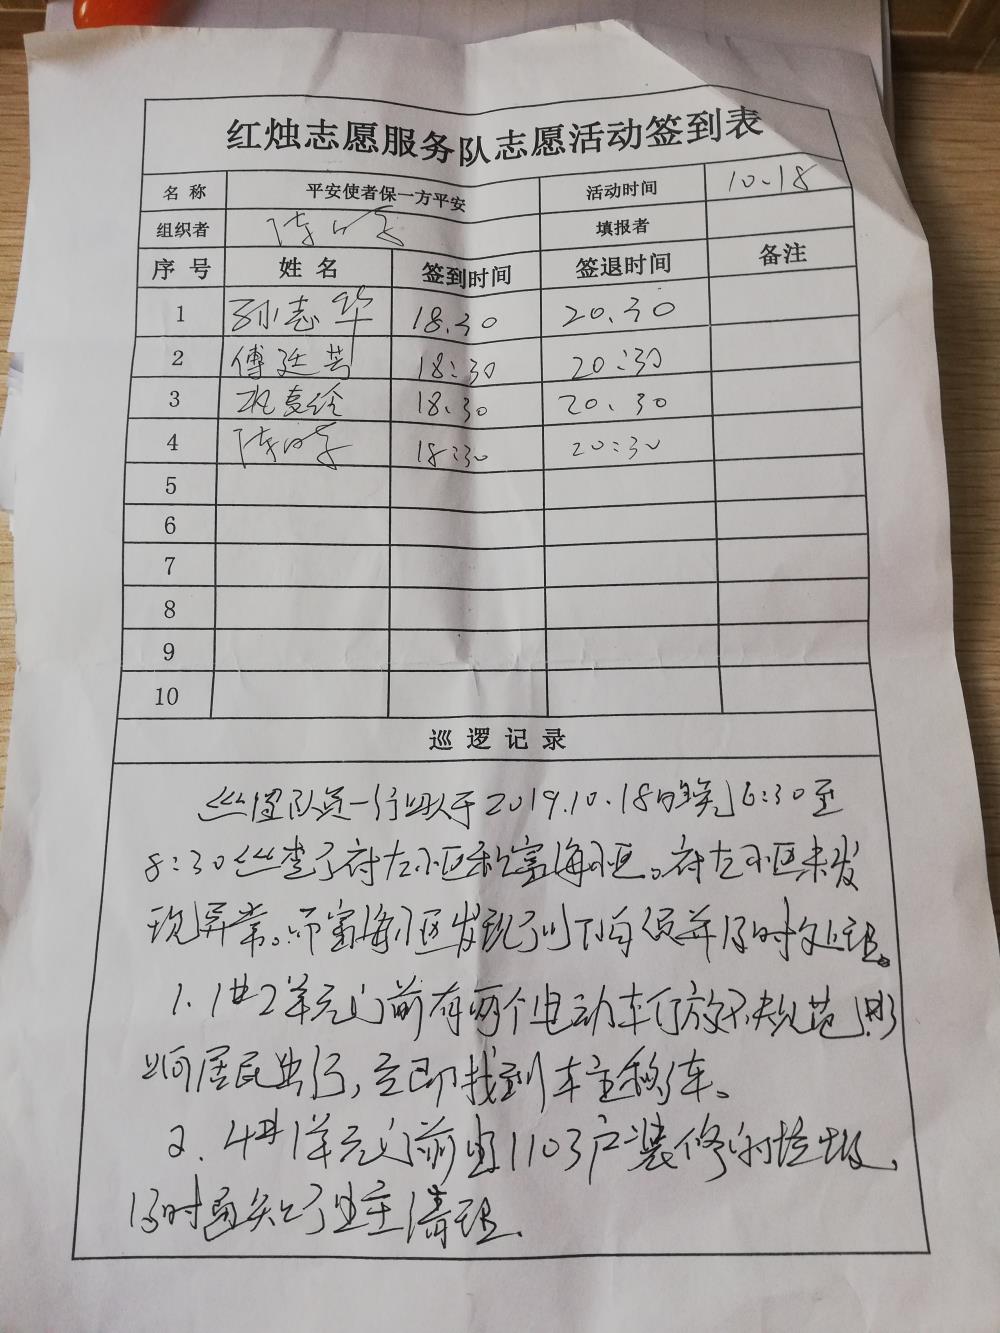 红烛志愿服务队志愿活动签到表
名 称 平安使者保一方平安 活动时间 10.18
组织者 填报者
序 号 姓 名 签到时间 签退时间 备注
1 孙志华 18.30 20.30
2 傅廷芸 18:30 20:30
3 18.30 20.30
4 18:30 20:30
5
6
7
8
9
10
巡 逻 记 录
队员一行四人于2019.10.18日晚6:30至
8:30巡查了府左小区和富海小区。府左小区未发
现异常。而富海小区发现了以下情况并及时处理。
1. 1#2单元门前有两个电动车停放不规范影
响居民出行，立即找到车主移车。
2. 4#1单元门前有1103户装修的垃圾，
及时通知了业主清理.